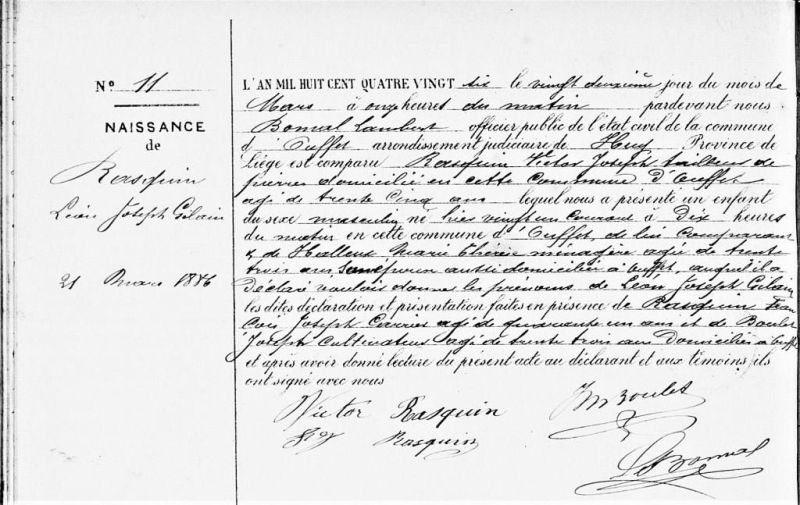 N° 11
NAISSANCE
de
Rasquin
Léon Joseph Gilain
21 Mars 1886
L'AN MIL HUIT CENT QUATRE VINGT six le vingt deuxième jour du mois de
Mars à onze heures du matin pardevant nous
Bonmal Lambert officier public de l'état civil de la commune
d'Ouffet arrondissement judiciaire de Huy Province de
Liège est comparu Rasquin Victor Joseph tailleur de
pierres domicilié en cette Commune d'Ouffet
agé de trente cinq ans lequel nous a présenté un enfant
du sexe masculin né hier vingt un courant à Dix heures
du matin en cette commune d'Ouffet, de lui Comparant
& de Halleux Marie Thérèse ménagère agée de trente
trois ans, son épouse aussi domiciliée à Ouffet, auquel il a
Déclaré vouloir donner les prénoms de Léon Joseph Gilain
les dites déclaration et présentation faites en présence de Rasquin Fran
çois Joseph Carrier agé de quarante un ans et de Boulet
Joseph Cultivateur agé de trente trois ans Domiciliés à Ouffet
et après avoir donné lecture du présent acte au déclarant et aux témoins, ils
ont signé avec nous
Victor Rasquin
Boulet
Rasquin
Bonmal